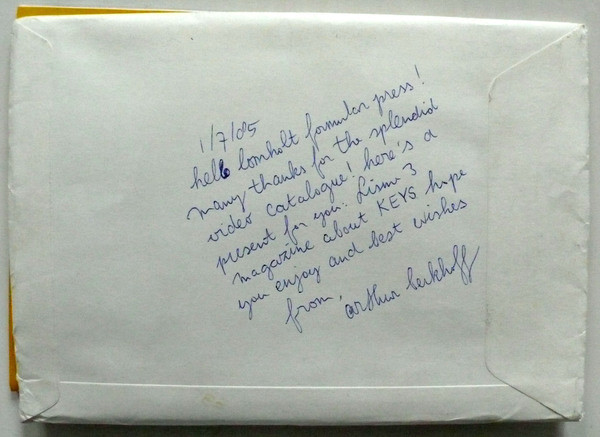 1/7/85
hello lomholt formular press!
many thanks for the splendid
video catalogue! here's a
present for you: Lismo 3
magazine about KEYS hope
you enjoy and best wishes
from, arthur berkhoff